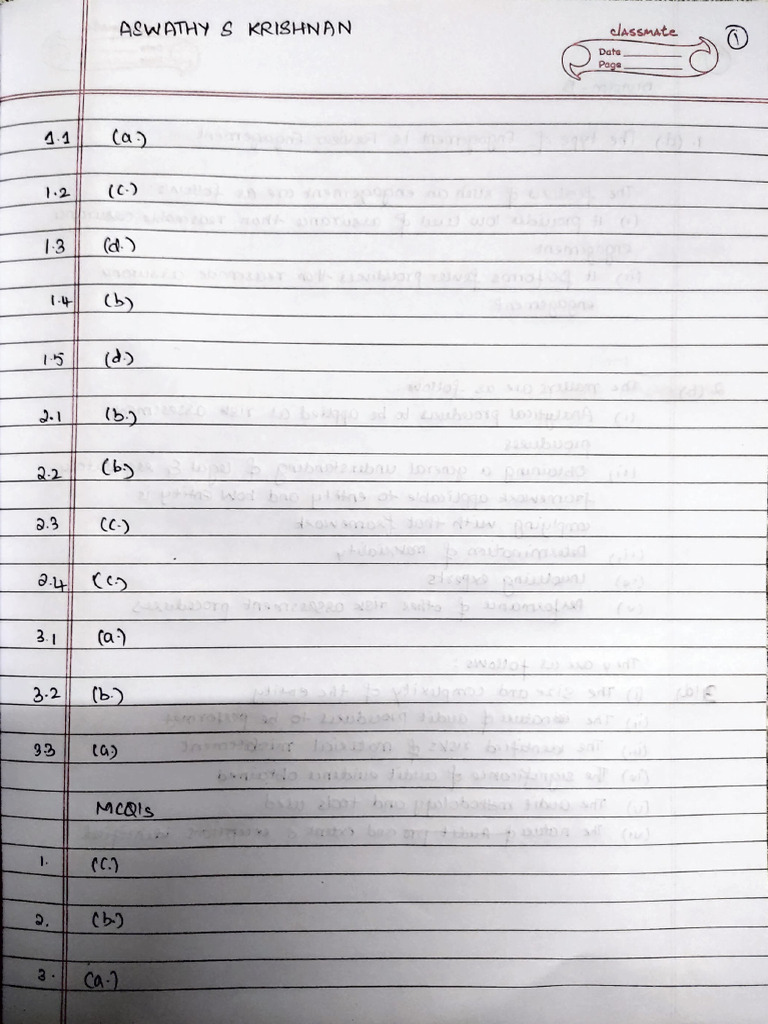 ASWATHY S KRISHNAN
classmate
①
Date
Page
1.1 (a.)
1.2 (c.)
1.3 (d.)
1.4 (b)
1.5 (d.)
2.1 (b.)
2.2 (b)
2.3 (c.)
2.4 (c.)
3.1 (a.)
3.2 (b.)
3.3 (a)
MCQ's
1. (c.)
2. (b.)
3. (a.)